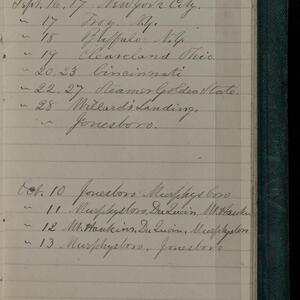 Sept. 16, 17 New York City.
" 17 Troy N.y.
" 18 Buffalo N.y.
" 19 Cleaveland Ohio
" 20.23 Cincinnati
" 22.27 Steamer Golden State.
" 28 Willard's Landing.
" Jonesboro.
Oct. 10 Jonesboro Murphysboro
" 11 Murphysboro, DuQuoin, Mt. Hawkins
" 12 Mt. Hawkins, DuQuoin, Murphysboro
" 13 Murphysboro, Jonesboro